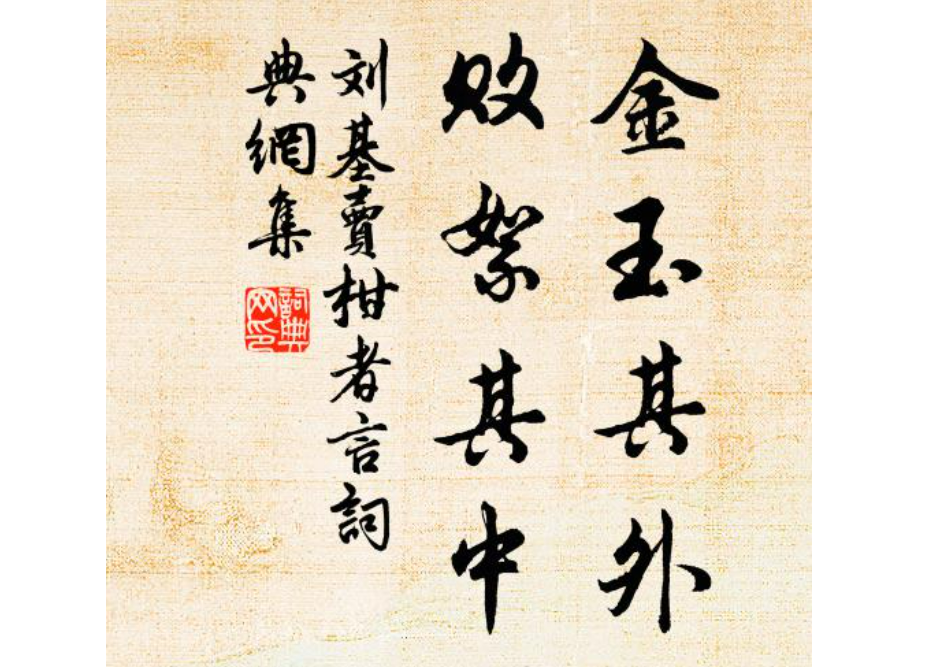 金玉其外
败絮其中
刘基賣柑者言詞
典網集
詞典网印